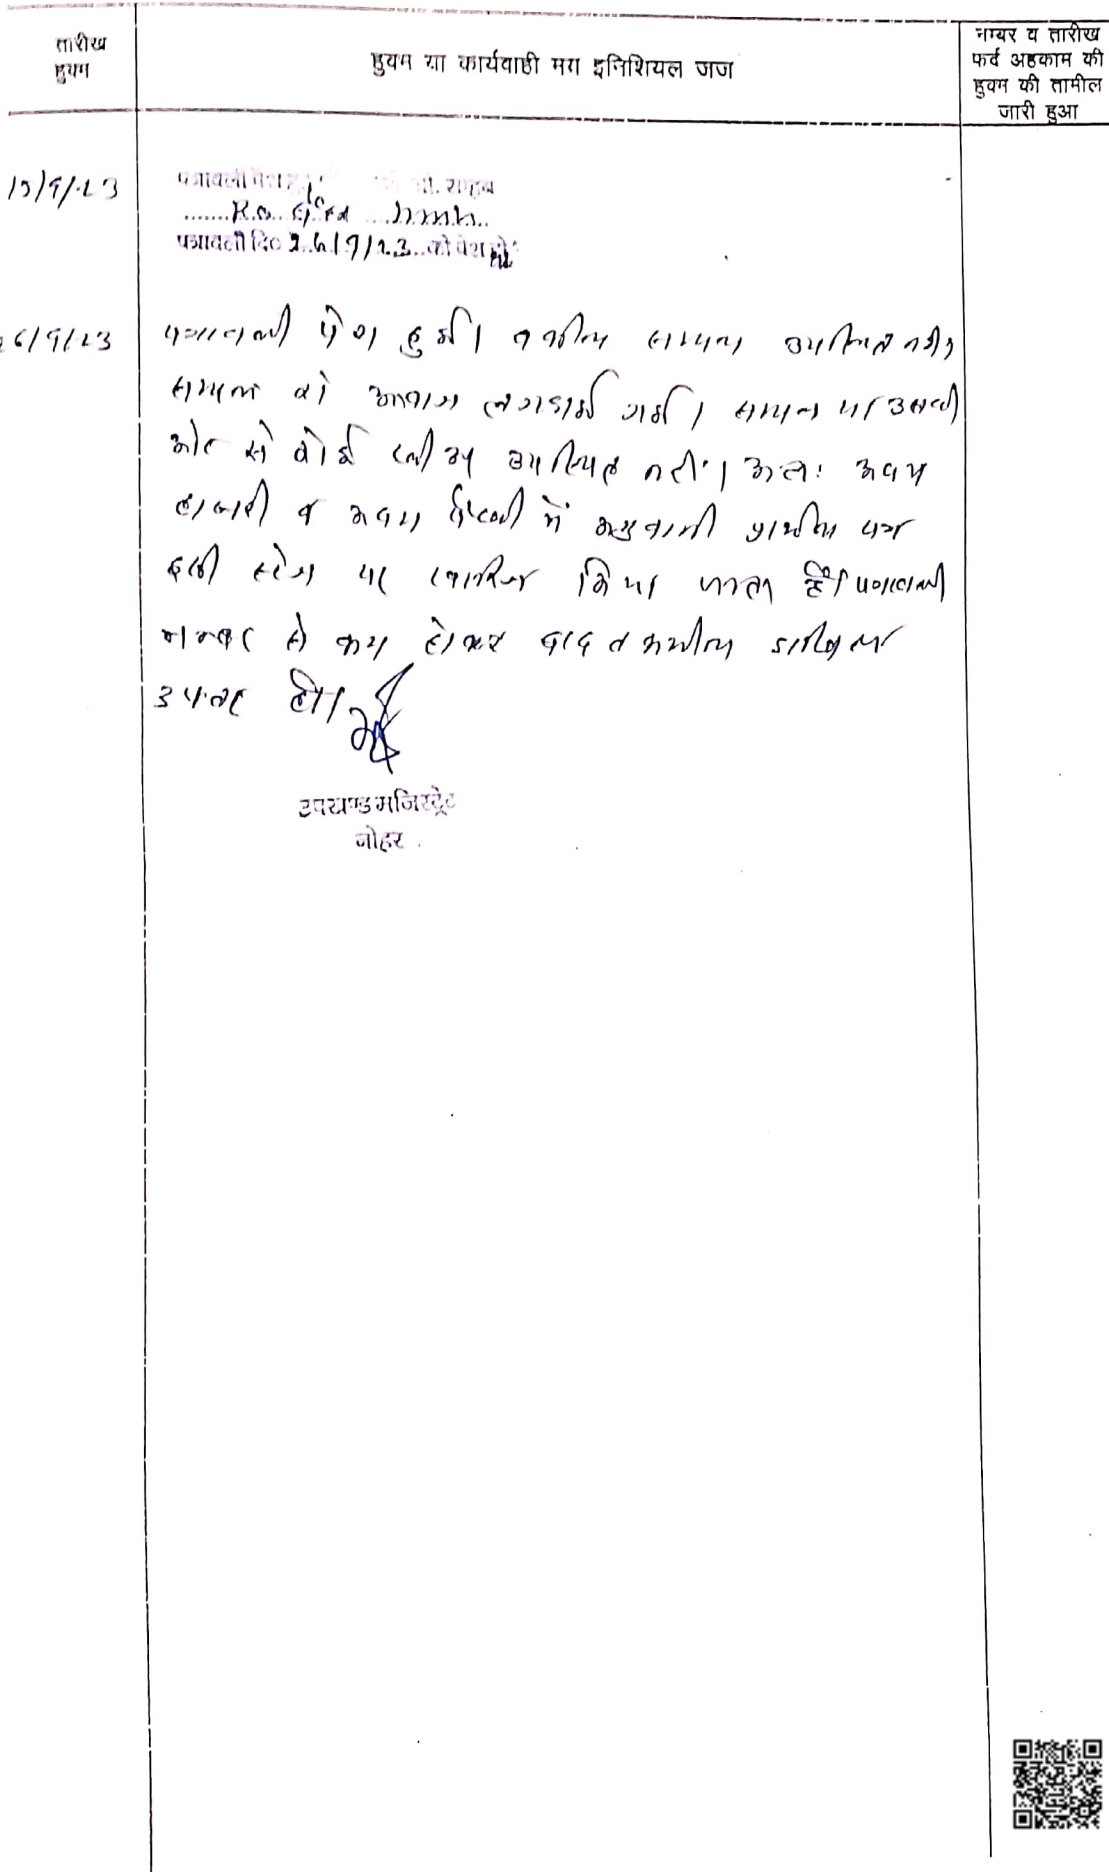 तारीख
हुक्म
हुक्म या कार्यवाही मय इनिशियल जज
नम्बर व तारीख
फर्द अहकाम की
हुक्म की तामील
जारी हुआ
पत्रावली पेश हुई
पत्रावली दि० 26/9/23 को पेश हो
26/9/23
पत्रावली पेश हुई। वकील सायल उपस्थित नहीं
सायल को आवाज लगवाई गई। सायल या उसकी
ओर से कोई भी उपस्थित नहीं। अतः अदम
हाजरी व अदम पैरवी में प्रार्थना पत्र
इसी स्टेज पर खारिज किया जाता है। पत्रावली
नम्बर से कम होकर बाद तकमील दाखिल
दफ्तर हो।
उपखण्ड मजिस्ट्रेट
नोहर